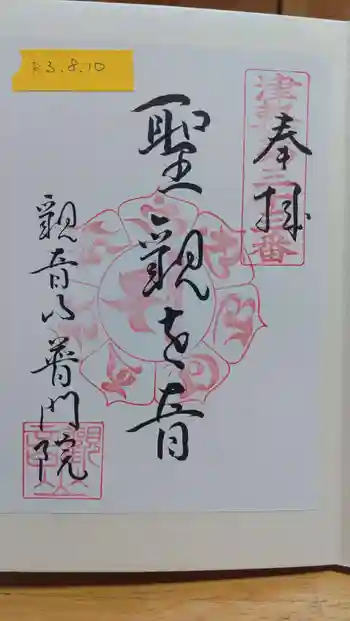 R3.8.10
奉拝
聖観世音
観音山普門院